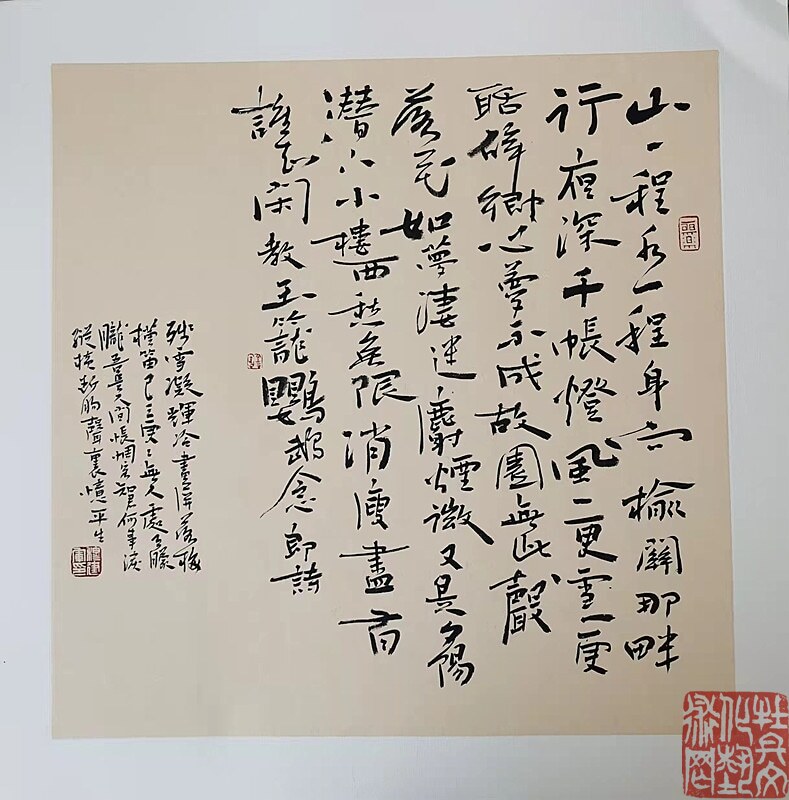 山一程水一程身向榆關那畔
行夜深千帳燈風一更雪一更
聒碎鄉心夢不成故園無此聲
落花如夢淒迷麝煙微又是夕陽
潛下小樓西愁無限消瘦盡有
誰知閑教玉籠鸚鵡念郎詩
殘雪凝輝冷畫屏落梅
橫笛已三更更無人處月朦
朧吾是人間悵惆客知君何事淚
縱橫斷腸聲裏憶平生